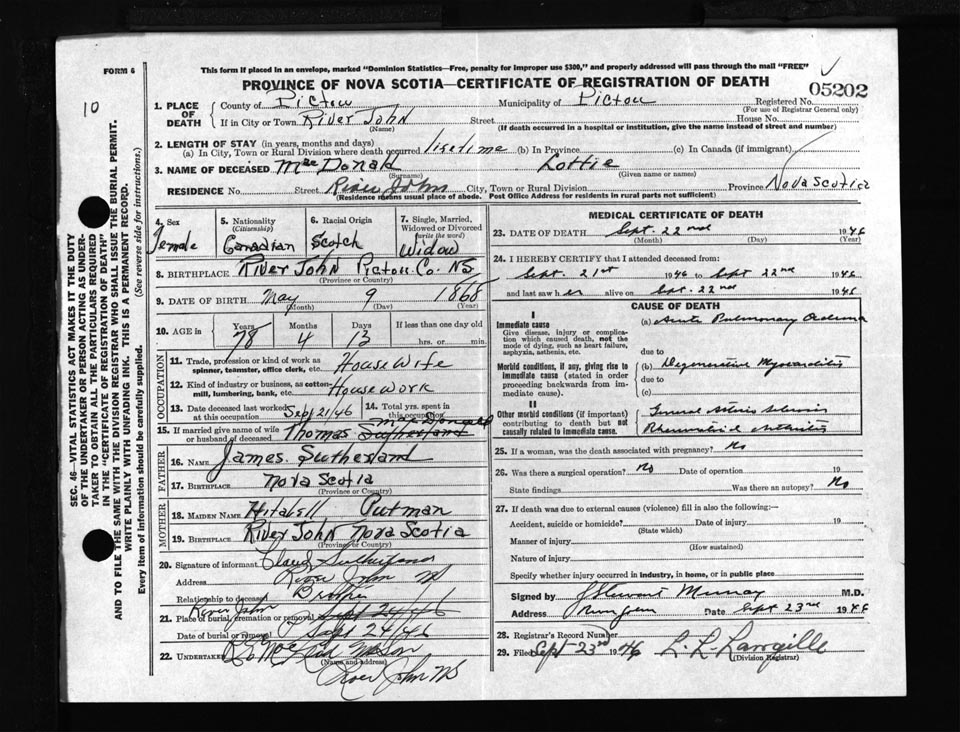 FORM 6
This form if placed in an envelope, marked "Dominion Statistics—Free, penalty for improper use $300," and properly addressed will pass through the mail "FREE"
PROVINCE OF NOVA SCOTIA—CERTIFICATE OF REGISTRATION OF DEATH
05202
10
1. PLACE OF DEATH { County of Pictou Municipality of Pictou Registered No.
(For use of Registrar General only)
If in City or Town River John Street House No.
(Name) (If death occurred in a hospital or institution, give the name instead of street and number)
2. LENGTH OF STAY (in years, months and days)
(a) In City, Town or Rural Division where death occurred lifetime (b) In Province (c) In Canada (if immigrant)
3. NAME OF DECEASED MacDonald Lottie
(Surname) (Given name or names)
RESIDENCE No. Street River John City, Town or Rural Division Province Nova Scotia
(Residence means usual place of abode. Post Office Address for residents in rural parts not sufficient)
SEC. 46—VITAL STATISTICS ACT MAKES IT THE DUTY
OF THE UNDERTAKER OR PERSON ACTING AS UNDER-
TAKER TO OBTAIN ALL THE PARTICULARS REQUIRED
IN THE "CERTIFICATE OF REGISTRATION OF DEATH"
AND TO FILE THE SAME WITH THE DIVISION REGISTRAR WHO SHALL ISSUE THE BURIAL PERMIT.
WRITE PLAINLY WITH UNFADING INK. THIS IS A PERMANENT RECORD.
Every item of information should be carefully supplied. (See reverse side for instructions.)
4. Sex 5. Nationality (Citizenship) 6. Racial Origin 7. Single, Married, Widowed or Divorced (write the word)
Female Canadian Scotch Widow
8. BIRTHPLACE River John Pictou Co. NS
(Province or Country)
9. DATE OF BIRTH May 9 1868
(Month) (Day) (Year)
10. AGE in Years Months Days If less than one day old
78 4 13 hrs. or min.
OCCUPATION
11. Trade, profession or kind of work as spinner, teamster, office clerk, etc. House Wife
12. Kind of industry or business, as cotton-mill, lumbering, bank, etc. House work
13. Date deceased last worked at this occupation Sept 21/46 14. Total yrs. spent in this occupation
15. If married give name of wife or husband of deceased Thomas Sutherland McDonald
FATHER
16. NAME James Sutherland
17. BIRTHPLACE Nova Scotia
(Province or Country)
MOTHER
18. MAIDEN NAME Putman
19. BIRTHPLACE River John Nova Scotia
(Province or Country)
20. Signature of informant Sutherland
Address River John NS
Relationship to deceased Brother
River John
21. Place of burial, cremation or removal Sept 24/46
Date of burial or removal Sept 24/46
22. UNDERTAKER
(Name and address)
River John NS
MEDICAL CERTIFICATE OF DEATH
23. DATE OF DEATH Sept. 22nd 1946
(Month) (Day) (Year)
24. I HEREBY CERTIFY that I attended deceased from:
Sept. 21st 1946 to Sept 22nd 1946
and last saw her alive on Sept. 22nd 1946
CAUSE OF DEATH
I
Immediate cause (a) Acute Pulmonary Oedema
Give disease, injury or complication which caused death, not the mode of dying, such as heart failure, asphyxia, asthenia, etc.
due to
Morbid conditions, if any, giving rise to immediate cause (stated in order proceeding backwards from immediate cause). (b) Degenerative Myocarditis
due to
(c)
II
Other morbid conditions (if important) contributing to death but not causally related to immediate cause.
General Arterio Sclerosis
Rheumatoid Arthritis
25. If a woman, was the death associated with pregnancy? No
26. Was there a surgical operation? No Date of operation 19
State findings Was there an autopsy? No
27. If death was due to external causes (violence) fill in also the following:—
Accident, suicide or homicide? Date of injury 19
(State which)
Manner of injury
(How sustained)
Nature of injury
Specify whether injury occurred in industry, in home, or in public place
Signed by J Stewart Murray M.D.
Address River John Date Sept 23rd 1946
28. Registrar's Record Number
29. Filed Sept 23rd 1946 L. L. Langille
(Division Registrar)